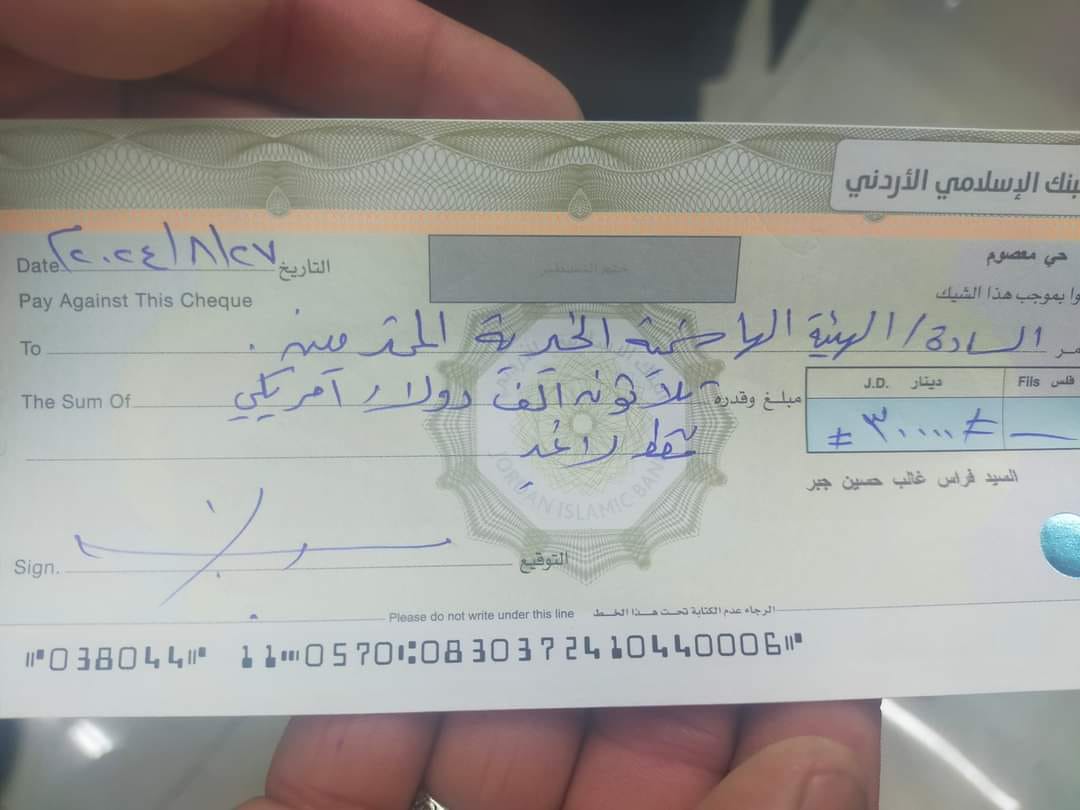 بنك الإسلامي الأردني
حي معصوم
Date ٢٠٢٤/٨/٢٧م التاريخ
ختم المسطر
Pay Against This Cheque
وا بموجب هذا الشيك
To السادة/ الهيئة الهاشمية الخيرية المحترمين. مر
The Sum Of ثلاثون ألف دولار أمريكي مبلغ وقدره
J.D. دينار Fils فلس
فقط لا غير
≠ ٣٠٠٠٠ ≠
السيد فراس غالب حسين جبر
JORDAN ISLAMIC BANK
Sign. التوقيع
Please do not write under this line الرجاء عدم الكتابة تحت هذا الخط
⑈038044⑈ 11⑉0570⑆0830372410440006⑈